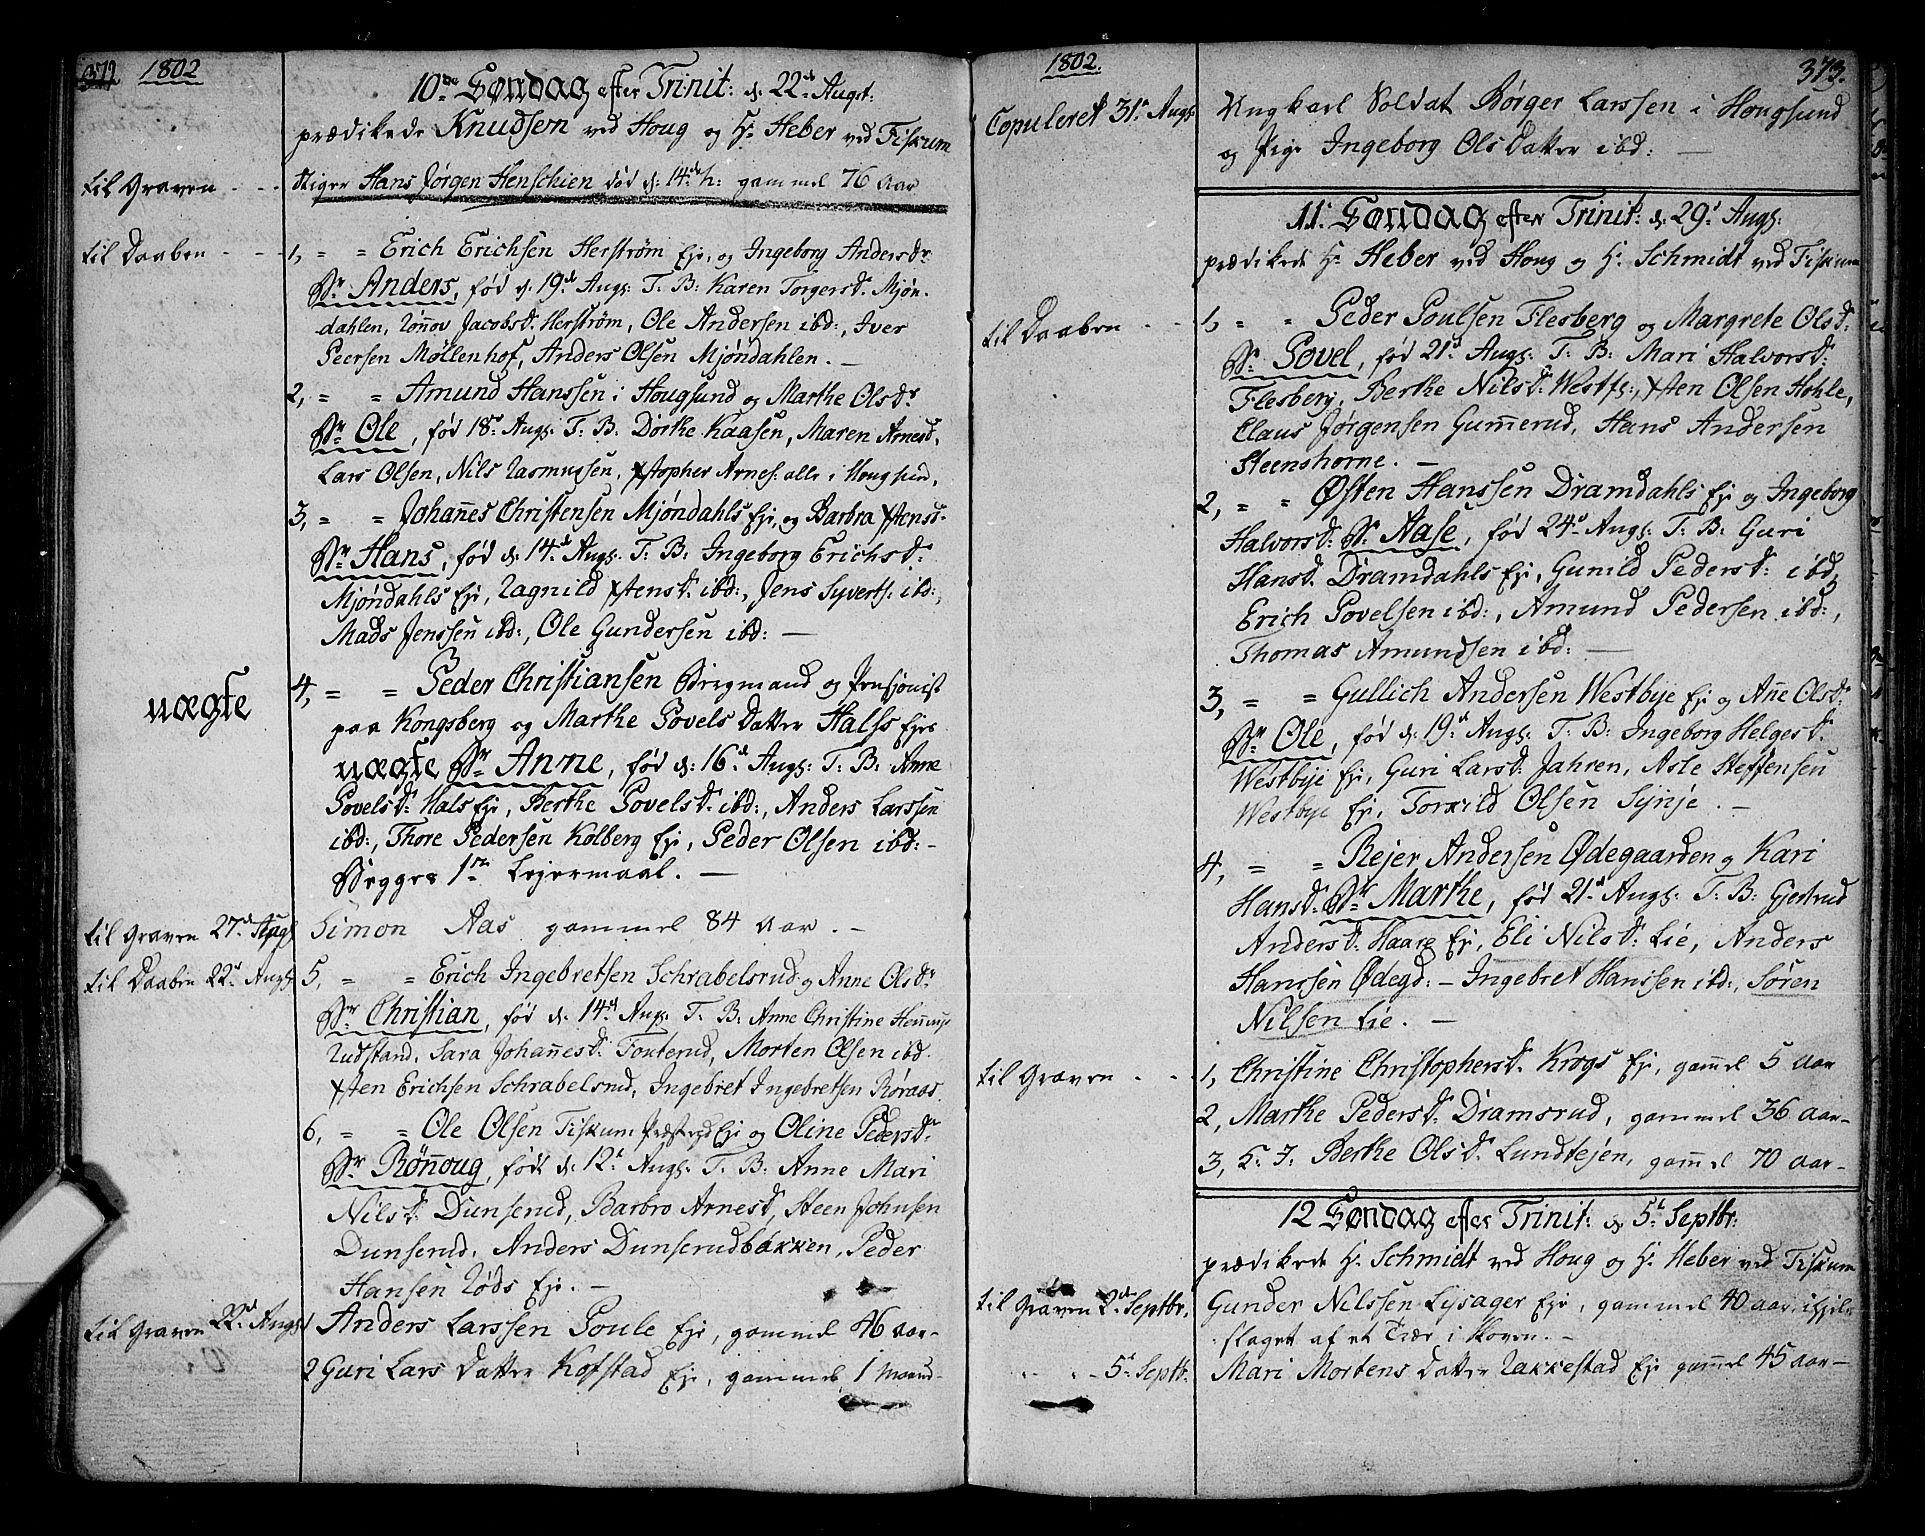 372 1802
10de Søndag efter Trinit: d: 22de Augst:
prædikede Knudsen ved Houg og Hr Heber ved Fiskum
til Graven - - - Stiger Hans Jørgen Henschien død d: 14de h: gammel 76 Aar
til Daaben - - - 1, " " Erich Erichsen Herstrøm Eje, og Ingeborg Andersdr
Br Anders, fød d: 19de Augs: T: B: Karen Torgersd. Mjøn-
dahlen, Rønnov Jacobsd. Herstrøm, Ole Andersen ibd:, Iver
Peersen Møllenhof, Anders Olsen Mjøndahlen. —
2, " " Amund Hanssen i Hougsund og Marthe Olsdr
Br Ole, fød 18de Augs: T: B. Dorthe Kaasen, Maren Arnesd,
Lars Olsen, Nils Rasmussen, Xstopher Arnes: alle i Hougsun,
3, " " Johannes Christensen Mjøndahls Eje, og Barbra Xstensd.
Br Hans, fød d: 14de Augs: T: B: Ingeborg Erichsd:
Mjøndahls Eje, Ragnild Xstensd: ibd:, Jens Syverts: ibd:,
Mads Jenssen ibd:, Ole Gundersen ibd: —
uægte 4, " " Peder Christiansen Bergmand og Pensjonist
paa Kongsberg og Marthe Povels Datter Hals Ejes
uægte Br Anne, fød d: 16de Augs: T: B: Anne
Povelsd: Hals Eje, Berthe Povelsd: ibd:, Anders Larssen
ibd:, Thore Pedersen Kolberg Eje, Peder Olsen ibd: -
Begges 1ste Lejermaal. —
til Graven 27de Augs Simon Aas gammel 84 Aar. —
til Daaben 22de Augs 5, " " Erich Ingebretsen Schrabelsrud og Anne Olsdr
Br Christian, fød d: 14de Augs: T. B: Anne Christine
Rudstand, Sara Johannesd: Fouterud, Morten Olsen ibd.
Xsten Erichsen Schrabelsrud, Ingebret Ingebretsen Røraas.
6, " " Ole Olsen Fiskum Præstegd Eje og Oline Pedersdr
Br Rønnoug, født d: 12te Augs: T. B: Anne Mari
Nilsd: Dunserud, Barbro Arnesd, Steen Johnsen
Dunserud, Anders Dunserudbakken, Peder
Hansen Røds Eje. —
til Graven 22de Augs 1 Anders Larssen Poule Eje, gammel 46 aar-
2 Guri Lars Datter Kofstad Eje, gammel 1 Maaned-
1802. 373.
Copuleret 31te Augs Ungkarl Soldat Børger Larssen i Hougsund
og Pige Ingeborg Ols Datter ibd: —
11te Søndag efter Trinit: d: 29de Augs:
prædikede Hr Heber ved Houg og Hr Schmidt ved Fiskum
til Daaben - - 1, " " Peder Poulsen Flesberg og Margrete Olsd:
Br Povel, fød 21de Augs: T: B: Mari Halvorsd:
Flesberg, Berthe Nilsd: Westf:, Xsten Olsen Hohle,
Claus Jørgensen Gunnerud, Hans Andersen
Steenshorne. —
2, " " Østen Hanssen Dramdahls Eje og Ingeborg
Halvorsd: Br Aase, fød 24de Augs: T: B: Guri
Hansd. Dramdahls Eje, Gunild Pedersd: ibd,
Erich Povelsen ibd:, Amund Pedersen ibd:,
Thomas Amundsen ibd: —
3, " " Gullich Andersen Westbye Eje og Anne Olsd:
Br Ole, fød d: 19de Augs: T: B: Ingeborg Helgesd:
Westbye Eje, Guri Larsd: Jahren, Asle Steffensen
Westbye Eje, Torkild Olsen Synje. —
4, " " Rejer Andersen Ødegaarden og Kari
Hansd: Br Marthe, fød 21de Augs: T: B: Gjertrud
Andersd: Haare Eje, Eli Nilsd: Lie, Anders
Hanssen Ødegd: — Ingebret Hanssen ibd:, Søren
Nilsen Lie. —
til Graven - - 1, Christine Christophersd. Krogs Eje, gammel 5 aar
2, Marthe Pedersd: Dramsrud, gammel 36 aar-
3, Berthe Olsdr Lundtejen, gammel 70 aar-
12 Søndag efter Trinit: d: 5te Septbr:
prædikede Hr Schmidt ved Houg og Hr Heber ved Fiskum
til Graven 2de Septbr. Gunder Nilssen Lysager Eje, gammel 40 aar, ihjel-
slaget af et Træ i Skoven. —
" " 5te Septbr. Mari Mortens Datter Rakkestad Eje gammel 45 aar-